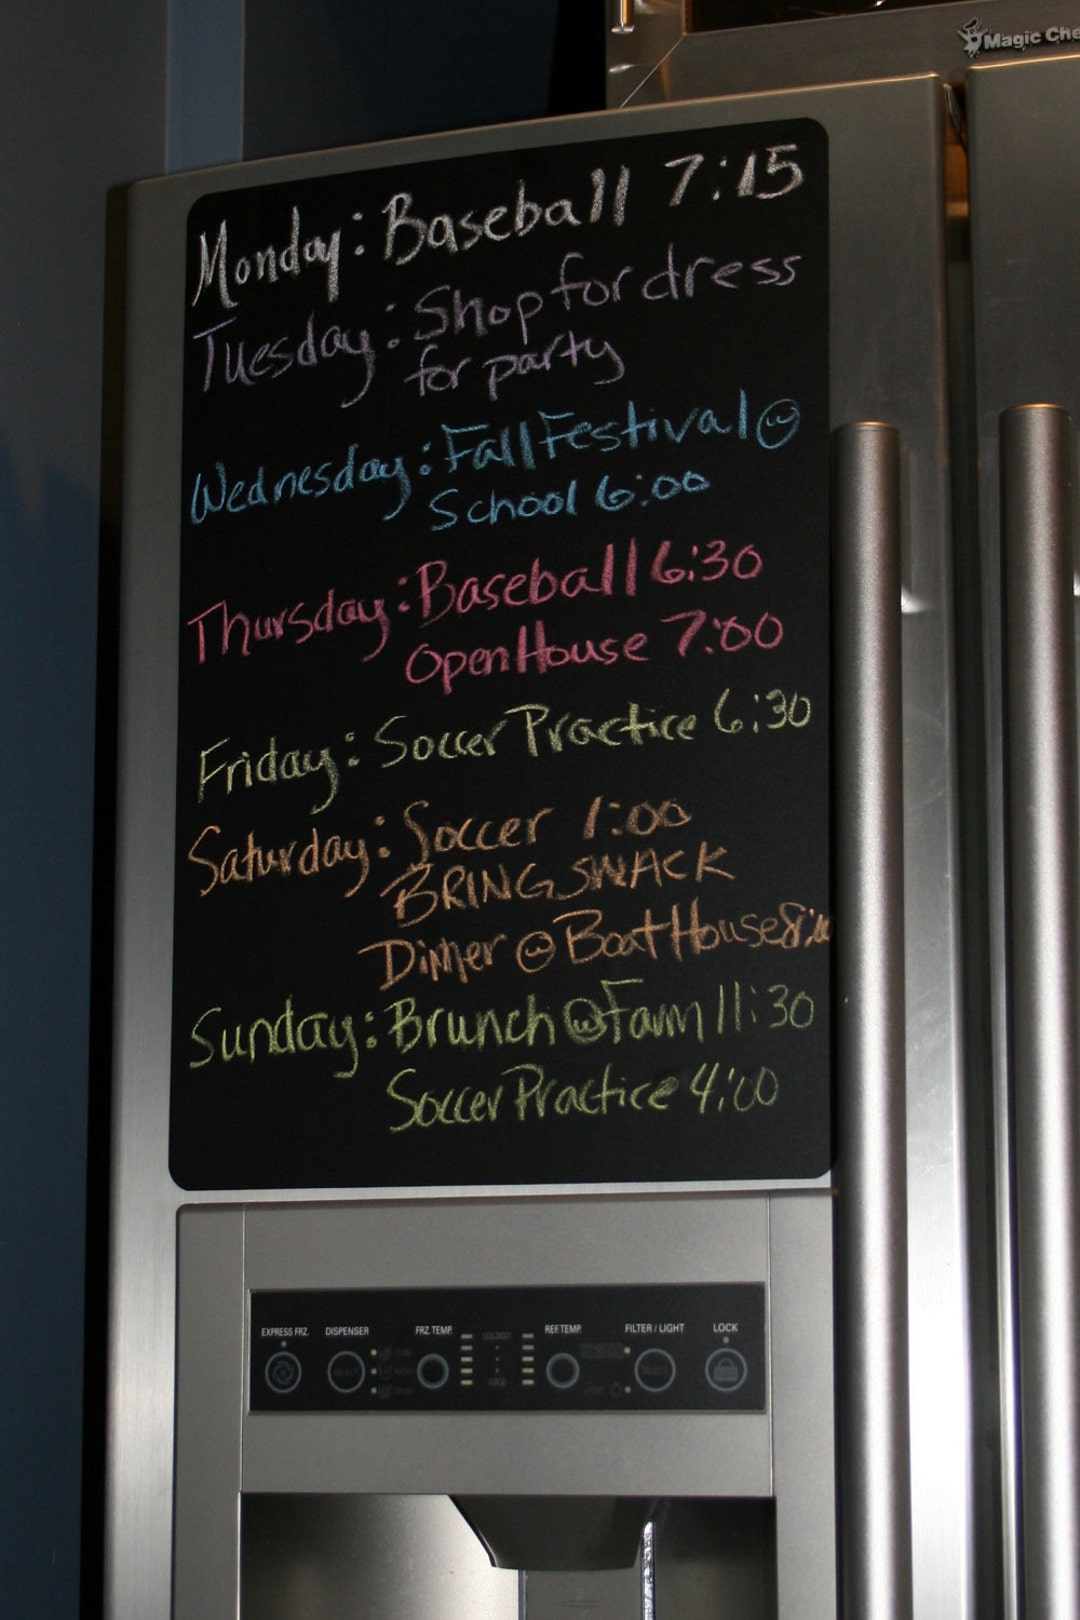 Magic Che
Monday: Baseball 7:15
Tuesday: Shop for dress
for party
Wednesday: Fall Festival @
School 6:00
Thursday: Baseball 6:30
Open House 7:00
Friday: Soccer Practice 6:30
Saturday: Soccer 1:00
BRING SNACK
Dinner @ Boat House 8:00
Sunday: Brunch @ Farm 11:30
Soccer Practice 4:00
EXPRESS FRZ. DISPENSER FRZ. TEMP. REF. TEMP. FILTER / LIGHT LOCK
COLDEST
SELECT SELECT
COLD